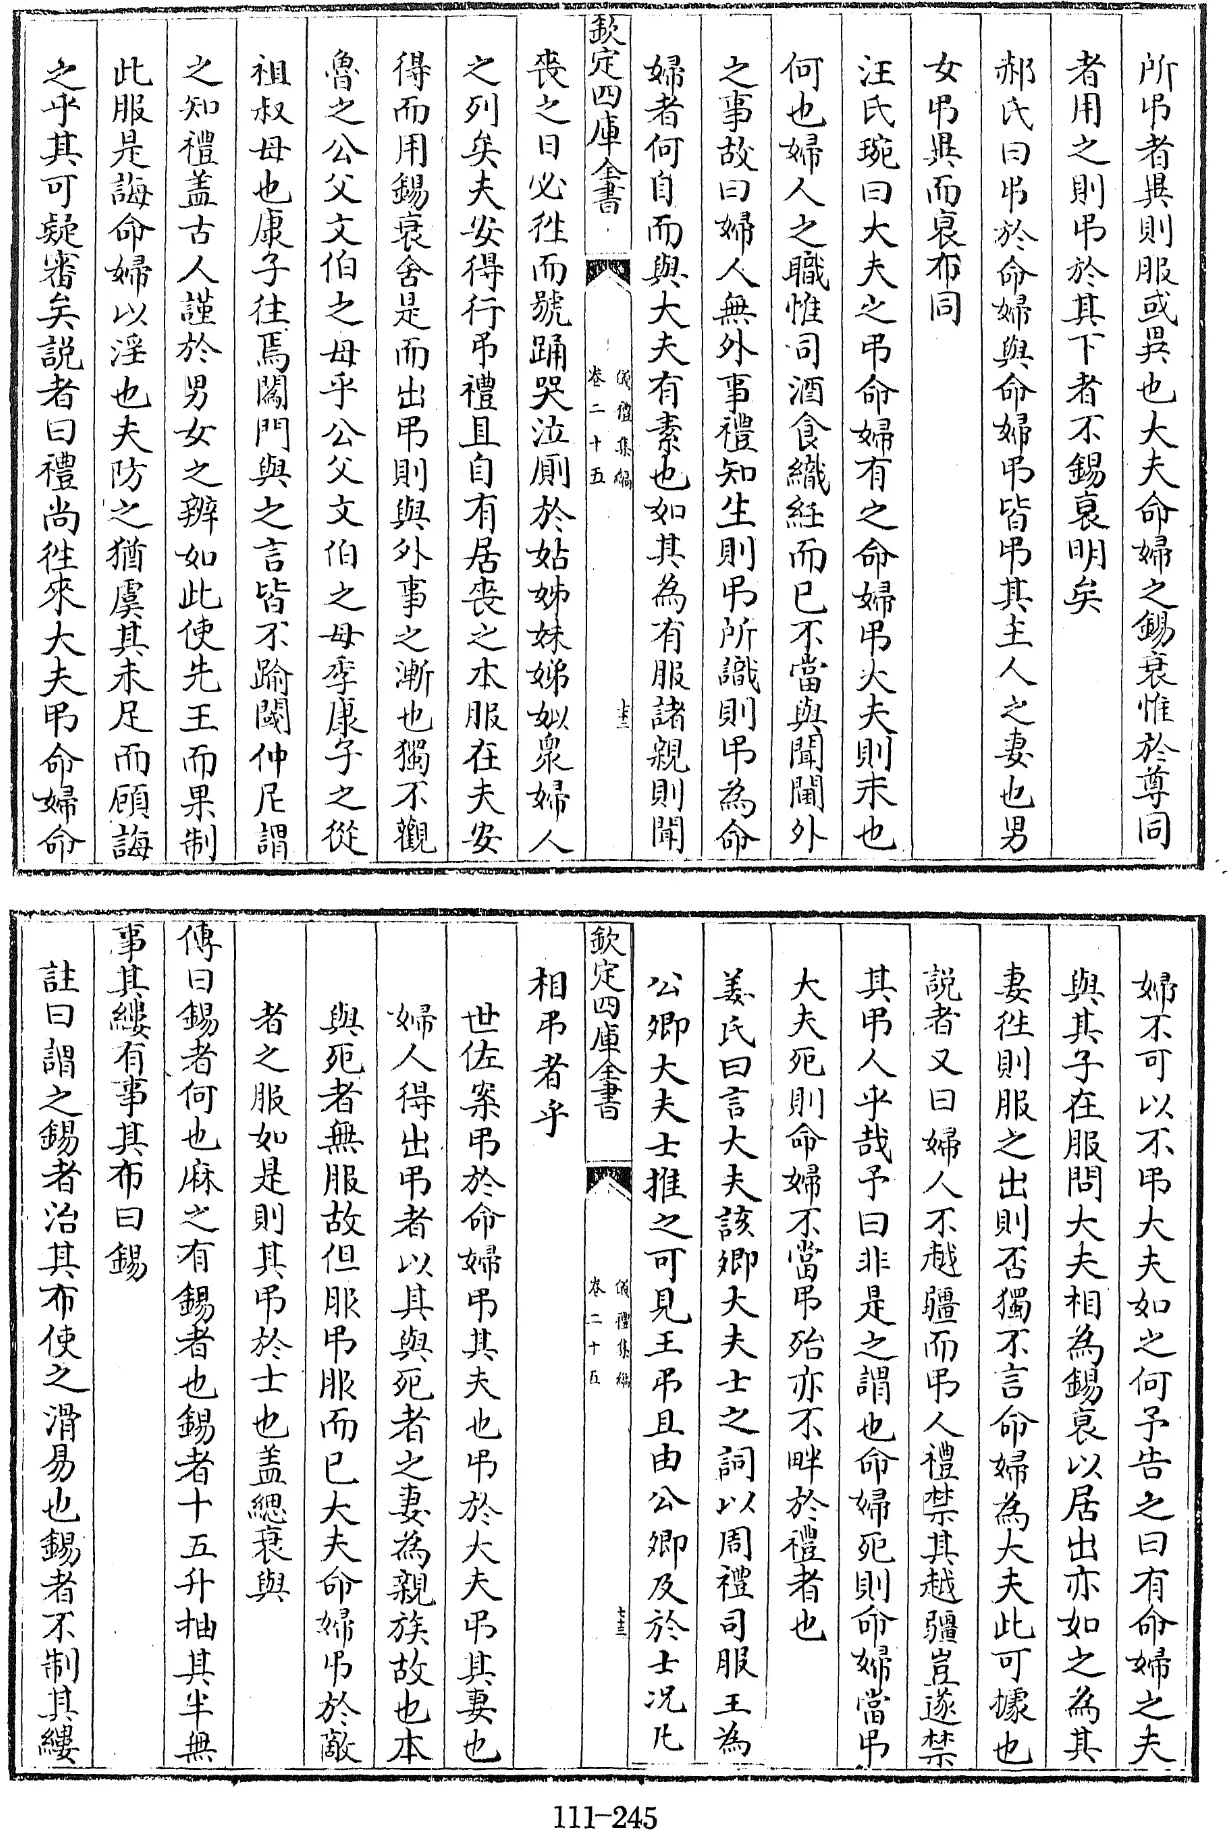 所弔者異則服或異也大夫命婦之錫衰惟於尊同
者用之則弔於其下者不錫衰明矣
郝氏曰弔於命婦與命婦弔皆弔其主人之妻也男
女弔異而衰布同
汪氏琬曰大夫之弔命婦有之命婦弔大夫則未也
何也婦人之職惟司酒食織紝而已不當與聞閫外
之事故曰婦人無外事禮知生則弔所識則弔為命
婦者何自而與大夫有素也如其為有服諸親則聞
欽定四庫全書
儀禮集編
卷二十五
七十三
喪之日必徃而號踊哭泣厠於姑姊妹娣姒衆婦人
之列矣夫安得行弔禮且自有居喪之本服在夫安
得而用錫衰舍是而出弔則與外事之漸也獨不觀
魯之公父文伯之母乎公父文伯之母季康子之從
祖叔母也康子往焉闖門與之言皆不踰閾仲尼謂
之知禮盖古人謹於男女之辨如此使先王而果制
此服是誨命婦以淫也夫防之猶虞其未足而顧誨
之乎其可疑審矣説者曰禮尚徃來大夫弔命婦命
婦不可以不弔大夫如之何予告之曰有命婦之夫
與其子在服問大夫相為錫衰以居出亦如之為其
妻徃則服之出則否獨不言命婦為大夫此可據也
説者又曰婦人不越疆而弔人禮禁其越疆豈遂禁
其弔人乎哉予曰非是之謂也命婦死則命婦當弔
大夫死則命婦不當弔殆亦不畔於禮者也
姜氏曰言大夫該卿大夫士之詞以周禮司服王為
公卿大夫士推之可見王弔且由公卿及於士况凡
欽定四庫全書
儀禮集編
卷二十五
七十三
相弔者乎
世佐案弔於命婦弔其夫也弔於大夫弔其妻也
婦人得出弔者以其與死者之妻為親族故也本
與死者無服故但服弔服而已大夫命婦弔於敵
者之服如是則其弔於士也盖緦衰與
傳曰錫者何也麻之有錫者也錫者十五升抽其半無
事其縷有事其布曰錫
註曰謂之錫者治其布使之滑易也錫者不制其縷
111-245